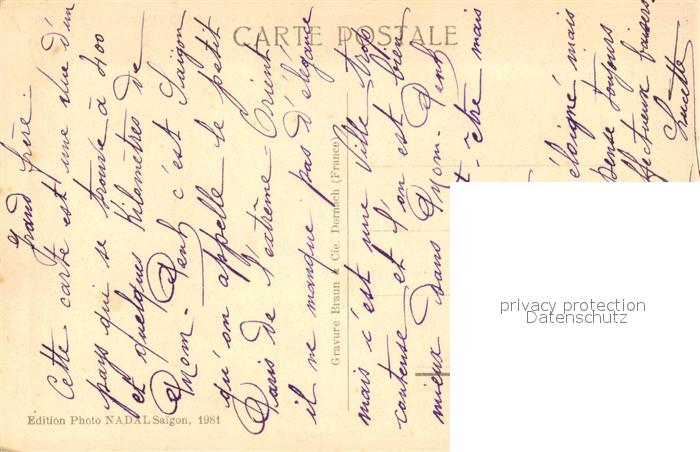 CARTE POSTALE
Grand frère.
Cette carte est une vue d'un
pays qui se trouve à 400
et quelques Kilomètres de
Pnom-Penh c'est Saïgon
qu'on appelle le petit
Paris de l'extrême Orient
il ne manque pas d'élégance
mais c'est une ville trop
et l'on est bien
mieux dans Pnom-Penh
être mais
éloigné mais
pense toujours
affectueux baisers
Lucette
Gravure Braun & Cie. Dornach (France)
Edition Photo NADAL Saïgon, 1981
privacy protection
Datenschutz